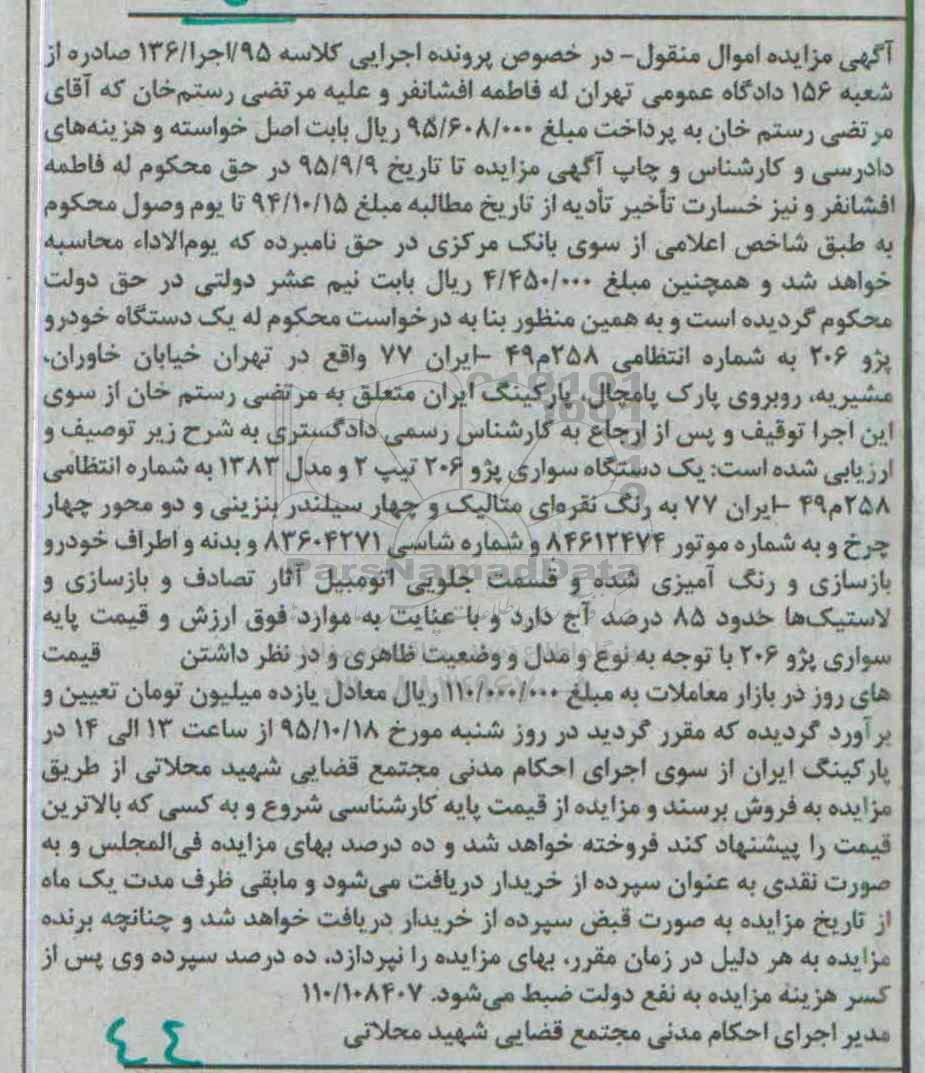 آگهی مزایده اموال منقول- در خصوص پرونده اجرایی کلاسه ۹۵/اجرا/۱۳۶ صادره از
شعبه ۱۵۶ دادگاه عمومی تهران له فاطمه افشانفر و علیه مرتضی رستم‌خان که آقای
مرتضی رستم خان به پرداخت مبلغ ۹۵/۶۰۸/۰۰۰ ریال بابت اصل خواسته و هزینه‌های
دادرسی و کارشناس و چاپ آگهی مزایده تا تاریخ ۹۵/۹/۹ در حق محکوم له فاطمه
افشانفر و نیز خسارت تأخیر تأدیه از تاریخ مطالبه مبلغ ۹۴/۱۰/۱۵ تا یوم وصول محکوم
به طبق شاخص اعلامی از سوی بانک مرکزی در حق نامبرده که یوم‌الاداء محاسبه
خواهد شد و همچنین مبلغ ۴/۴۵۰/۰۰۰ ریال بابت نیم عشر دولتی در حق دولت
محکوم گردیده است و به همین منظور بنا به درخواست محکوم له یک دستگاه خودرو
پژو ۲۰۶ به شماره انتظامی ۲۵۸م۴۹ -ایران ۷۷ واقع در تهران خیابان خاوران،
مشیریه، روبروی پارک پامچال، پارکینگ ایران متعلق به مرتضی رستم خان از سوی
این اجرا توقیف و پس از ارجاع به کارشناس رسمی دادگستری به شرح زیر توصیف و
ارزیابی شده است: یک دستگاه سواری پژو ۲۰۶ تیپ ۲ و مدل ۱۳۸۳ به شماره انتظامی
۲۵۸م۴۹ -ایران ۷۷ به رنگ نقره‌ای متالیک و چهار سیلندر بنزینی و دو محور چهار
چرخ و به شماره موتور ۸۴۶۱۲۴۷۴ و شماره شاسی ۸۳۶۰۴۲۷۱ و بدنه و اطراف خودرو
ParsNamadData
بازسازی و رنگ آمیزی شده و قسمت جلویی اتومبیل آثار تصادف و بازسازی و
لاستیک‌ها حدود ۸۵ درصد آج دارد و با عنایت به موارد فوق ارزش و قیمت پایه
سواری پژو ۲۰۶ با توجه به نوع و مدل و وضعیت ظاهری و در نظر داشتن قیمت
های روز در بازار معاملات به مبلغ ۱۱۰/۰۰۰/۰۰۰ ریال معادل یازده میلیون تومان تعیین و
برآورد گردیده که مقرر گردید در روز شنبه مورخ ۹۵/۱۰/۱۸ از ساعت ۱۳ الی ۱۴ در
پارکینگ ایران از سوی اجرای احکام مدنی مجتمع قضایی شهید محلاتی از طریق
مزایده به فروش برسند و مزایده از قیمت پایه کارشناسی شروع و به کسی که بالاترین
قیمت را پیشنهاد کند فروخته خواهد شد و ده درصد بهای مزایده فی‌المجلس و به
صورت نقدی به عنوان سپرده از خریدار دریافت می‌شود و مابقی ظرف مدت یک ماه
از تاریخ مزایده به صورت قبض سپرده از خریدار دریافت خواهد شد و چنانچه برنده
مزایده به هر دلیل در زمان مقرر، بهای مزایده را نپردازد، ده درصد سپرده وی پس از
کسر هزینه مزایده به نفع دولت ضبط می‌شود. ۱۱۰/۱۰۸۴۰۷
مدیر اجرای احکام مدنی مجتمع قضایی شهید محلاتی
٤٤